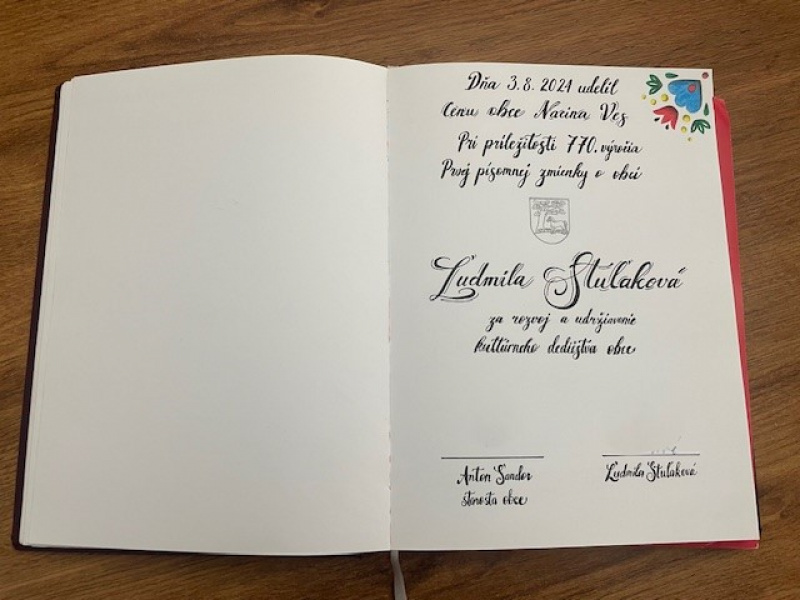 Dňa 3.8. 2024 udelil
Cenu obce Nacina Ves
Pri príležitosti 770. výročia
Prvej písomnej zmienky o obci
Ľudmila Stuľaková
za rozvoj a udržiavanie
kultúrneho dedičstva obce
Anton Šandor
starosta obce
Ľudmila Stuľaková